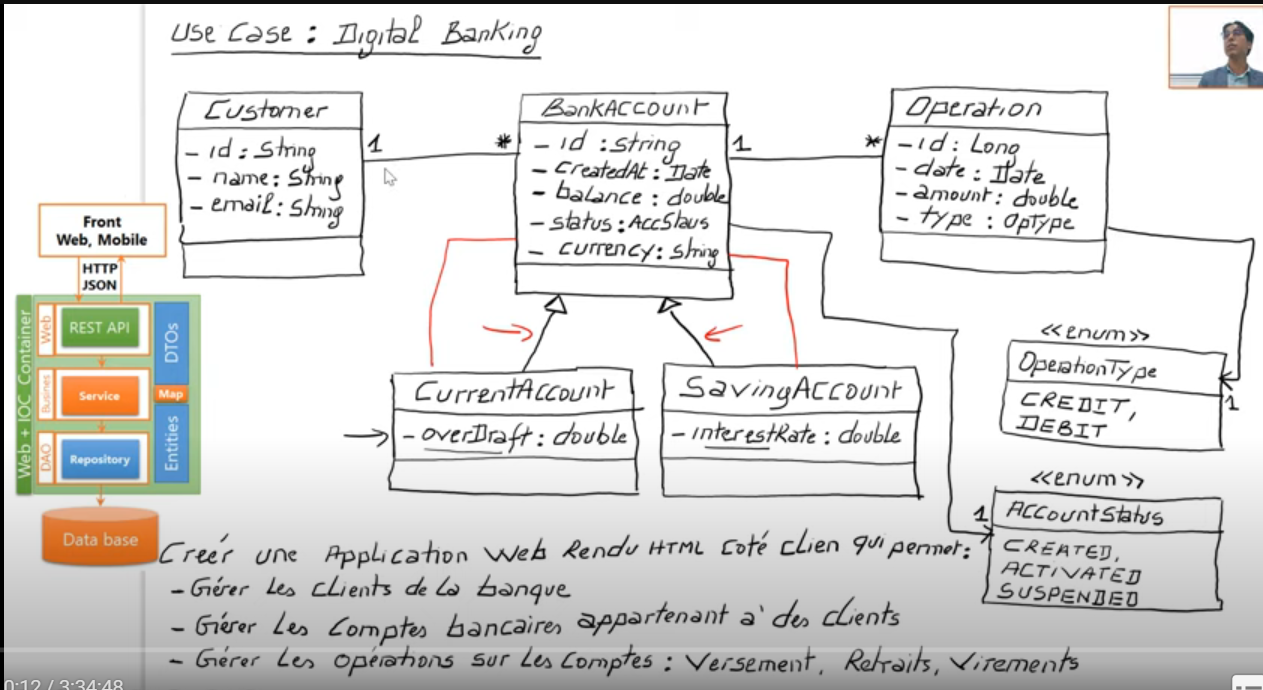 Use Case : Digital Banking
Customer
- id : String
- name : String
- email : String
1
*
BankAccount
- id : String
- createdAt : Date
- balance : double
- status : AccStaus
- currency : String
1
*
Operation
- id : Long
- date : Date
- amount : double
- type : OpType
Front
Web, Mobile
HTTP
JSON
Web + IOC Container
Web
REST API
DTOs
Busines
Service
Map
DAO
Repository
Entities
Data base
CurrentAccount
- overDraft : double
SavingAccount
- interestRate : double
<<enum>>
OperationType
CREDIT,
DEBIT
1
<<enum>>
1
AccountStatus
CREATED,
ACTIVATED
SUSPENDED
Creér une Application Web Rendu HTML Coté clien qui permet :
- Gérer Les clients de la banque
- Gérer Les Comptes bancaires appartenant à des clients
- Gérer Les opérations sur Les Comptes : Versement, Retraits, Virements
0:12 / 3:34:48